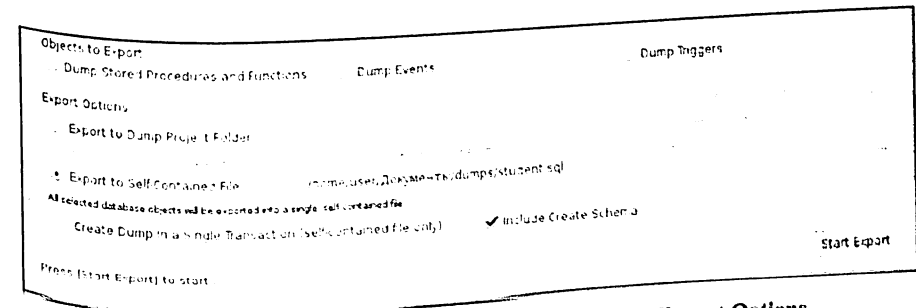 Objects to Export
Dump Stored Procedures and Functions Dump Events Dump Triggers
Export Options
Export to Dump Project Folder
Export to Self-Contained File /home/user/Документы/dumps/student.sql
All selected database objects will be exported into a single, self-contained file.
Create Dump in a Single Transaction (self-contained file only) ✓ Include Create Schema
Start Export
Press [Start Export] to start
Options